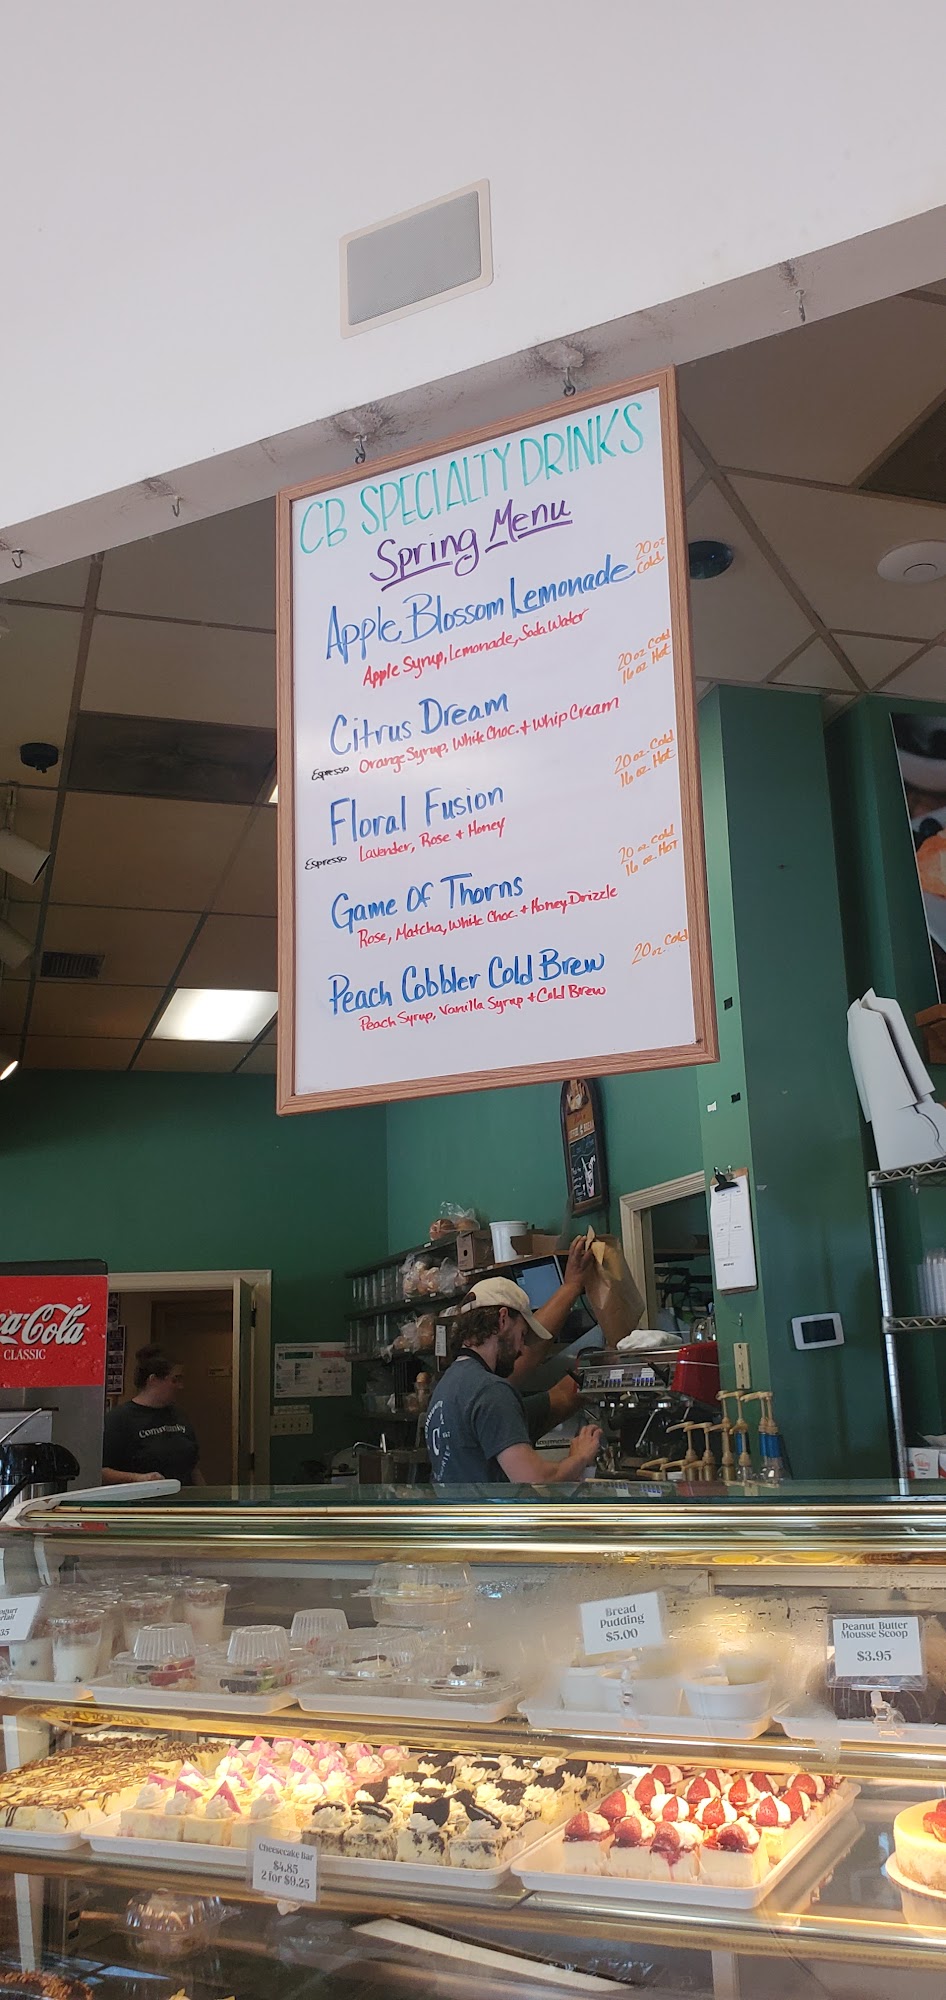 CB SPECIALTY DRINKS
Spring Menu
Apple Blossom Lemonade 20 oz Cold
Apple Syrup, Lemonade, Soda Water
Citrus Dream 20 oz Cold
16 oz Hot
Espresso Orange Syrup, White Choc. + Whip Cream
Floral Fusion 20 oz. Cold
16 oz. Hot
Espresso Lavender, Rose + Honey
Game Of Thorns 20 oz. Cold
16 oz. HOT
Rose, Matcha, White Choc. + Honey Drizzle
Peach Cobbler Cold Brew 20 oz. Cold
Peach Syrup, Vanilla Syrup + Cold Brew
ca-Cola
CLASSIC
Bread
Pudding
$5.00
Peanut Butter
Mousse Scoop
$3.95
Cheesecake Bar
$4.85
2 for $9.25